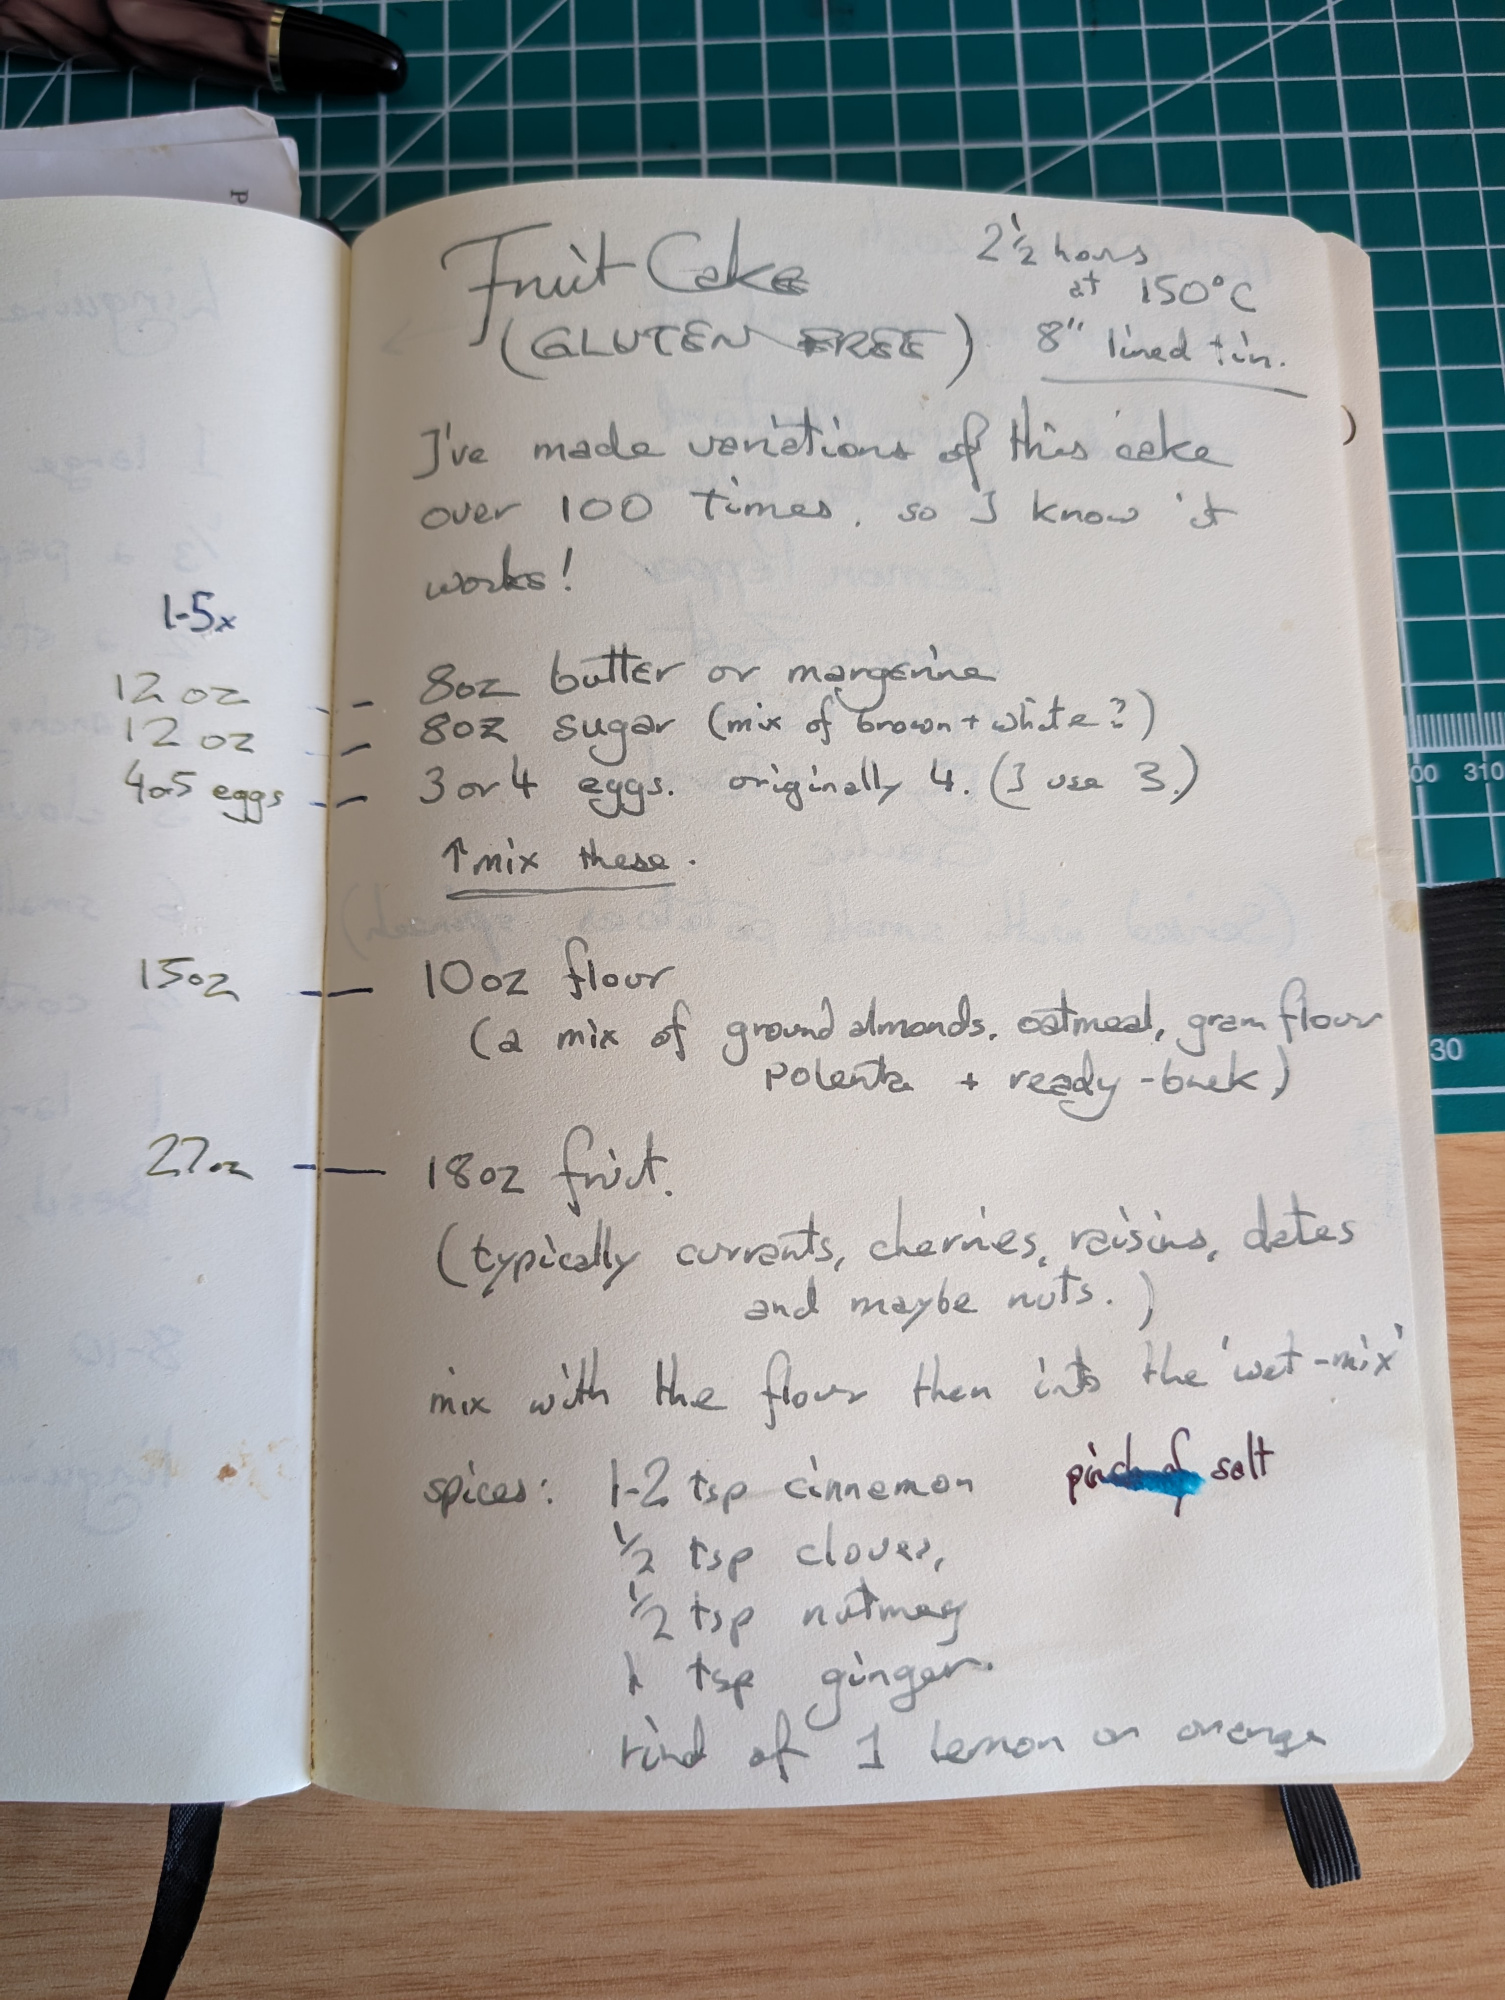 Fruit Cake
(GLUTEN FREE)
2½ hours
at 150°C
8" lined tin.
I've made variations of this cake
over 100 times, so I know it
works!
1-5x
12 oz - 8oz butter or margerine
12 oz - 8oz sugar (mix of brown + white?)
4or5 eggs - 3 or 4 eggs. originally 4. (I use 3.)
↑ mix these.
15oz - 10oz flour
(a mix of ground almonds, oatmeal, gram flour
polenta + ready-brek)
27oz - 18oz fruit.
(typically currants, cherries, raisins, dates
and maybe nuts.)
mix with the flour then into the 'wet-mix'
spices: 1-2 tsp cinnemon pinch of salt
½ tsp cloves,
½ tsp nutmeg
1 tsp ginger.
rind of 1 lemon or orange
P
00 310
30